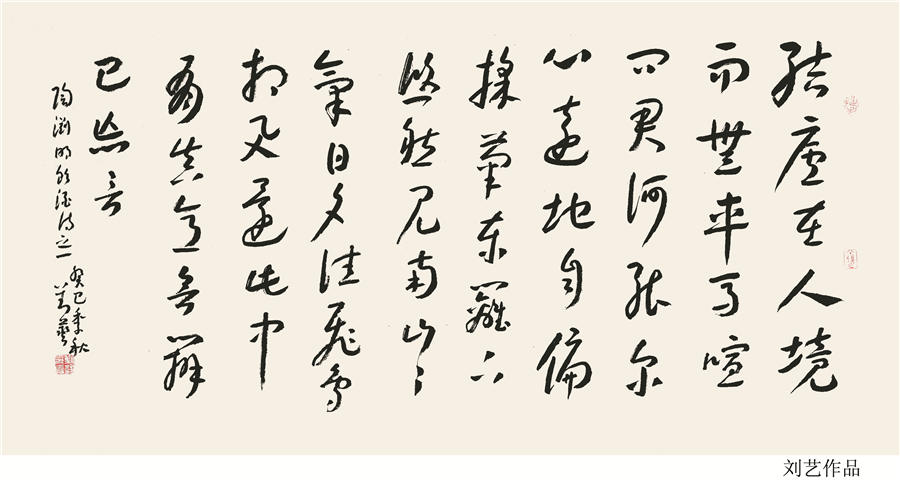 結廬在人境
而無車馬喧
問君何能尔
心遠地自偏
採菊東籬下
悠然見南山々
氣日夕佳飛鳥
相與還此中
有真意欲辨
已忘言
陶淵明飲酒詩之一
癸巳季秋
劉藝
刘艺作品